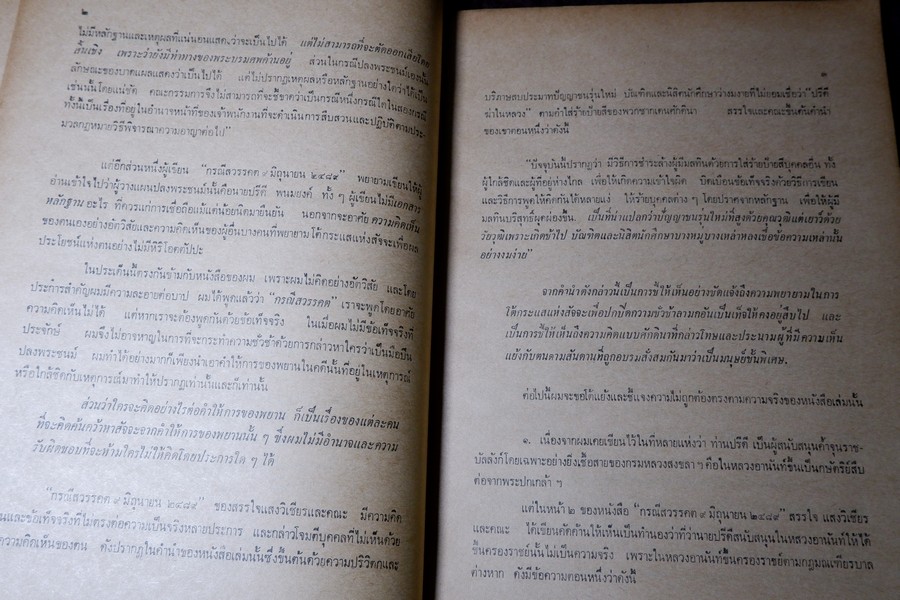 ๒
ไม่มีหลักฐานและเหตุผลที่แน่นอนแสดงว่าจะเป็นไปได้ แต่ไม่สามารถที่จะตัดออกเสียโดย
สิ้นเชิง เพราะว่ายังมีท่าทางของพระบรมศพค้านอยู่ ส่วนในกรณีปลงพระชนม์เองนั้น
ลักษณะของบาดแผลแสดงว่าเป็นไปได้ แต่ไม่ปรากฏเหตุผลหรือหลักฐานอย่างใดว่าได้เป็น
เช่นนั้นโดยแน่ชัด คณะกรรมการจึงไม่สามารถที่จะชี้ขาดว่าเป็นกรณีหนึ่งกรณีใดในสองกรณี
ทั้งนี้เป็นเรื่องที่อยู่ในอำนาจหน้าที่ของเจ้าพนักงานที่จะดำเนินการสืบสวนและปฏิบัติตามประ-
มวลกฎหมายวิธีพิจารณาความอาญาต่อไป”
แต่อีกส่วนหนึ่งผู้เขียน “กรณีสวรรคต ๙ มิถุนายน ๒๔๘๙” พยายามเขียนให้ผู้
อ่านเข้าใจไปว่าผู้วางแผนปลงพระชนม์นั้นคือนายปรีดี พนมยงค์ ทั้ง ๆ ผู้เขียนไม่มีเอกสาร
หลักฐานอะไร ที่ควรแก่การเชื่อถือแม้แต่น้อยนิดมายืนยัน นอกจากจะอาศัยความคิดเห็น
ของตนเองอย่างอัตวิสัยและความคิดเห็นของผู้อื่นบางคนที่พยายามโต้กระแสแห่งสัจจะเพื่อผล
ประโยชน์แห่งตนอย่างไม่มีหิริโอตตัปปะ
ในประเด็นนี้ตรงกันข้ามกับหนังสือของผม เพราะผมไม่คิดอย่างอัตวิสัย และโดย
ประการสำคัญผมมีความละอายต่อบาป ผมได้พูดแล้วว่า “กรณีสวรรคต” เราจะพูดโดยอาศัย
ความคิดเห็นไม่ได้ แต่หากเราจะต้องพูดกันด้วยข้อเท็จจริง ในเมื่อผมไม่มีข้อเท็จจริงที่
ประจักษ์ ผมจึงไม่อาจหาญในการที่จะกระทำความชั่วช้าด้วยการกล่าวหาใครว่าเป็นมือปืน
ปลงพระชนม์ ผมทำได้อย่างมากก็เพียงนำเอาคำให้การของพยานในคดีนั้นที่อยู่ในเหตุการณ์
หรือใกล้ชิดกับเหตุการณ์มาทำให้ปรากฏเท่านั้นและก็เท่านั้น
ส่วนว่าใครจะคิดอย่างไรต่อคำให้การของพยาน ก็เป็นเรื่องของแต่ละคน
ที่จะคิดค้นคว้าหาสัจจะจากคำให้การของพยานนั้น ๆ ซึ่งผมไม่มีอำนาจและความ
รับผิดชอบที่จะห้ามใครไม่ให้คิดโดยประการใด ๆ ได้
“กรณีสวรรคต ๙ มิถุนายน ๒๔๘๙” ของสรรใจแสงวิเชียรและคณะ มีความคิด
และข้อเท็จจริงที่ไม่ตรงต่อความเป็นจริงหลายประการ และกล่าวโจมตีบุคคลที่ไม่เห็นด้วย
ความคิดเห็นของตน ดังปรากฏในคำนำของหนังสือเล่มนั้นซึ่งขึ้นต้นด้วยความปริวิตกและ
๓
บริภาษสบประมาทปัญญาชนรุ่นใหม่ บัณฑิตและนิสิตนักศึกษาว่างมงายที่ไม่ยอมเชื่อว่า“ปรีดี
ฆ่าในหลวง” ตามคำใส่ร้ายป้ายสีของพวกซากเดนศักดินา สรรใจและคณะขึ้นต้นคำนำ
ของเขาตอนหนึ่งดังนี้
“ปัจจุบันนี้ปรากฏว่า มีวิธีการชำระล้างผู้มีมลทินด้วยการใส่ร้ายป้ายสีบุคคลอื่น ทั้ง
ผู้ใกล้ชิดและผู้ที่อยู่ห่างไกล เพื่อให้เกิดความเข้าใจผิด บิดเบือนข้อเท็จจริงด้วยวิธีการเขียน
และวิธีการพูดให้คิดกันได้หลายแง่ ให้ร้ายบุคคลต่าง ๆ โดยปราศจากหลักฐาน เพื่อให้ผู้มี
มลทินบริสุทธิ์ผุดผ่องขึ้น เป็นที่น่าแปลกว่าปัญญาชนรุ่นใหม่ที่สูงด้วยคุณวุฒิแต่เยาว์ด้วย
วัยวุฒิเพราะเกิดช้าไป บัณฑิตและนิสิตนักศึกษาบางหมู่บางเหล่าหลงเชื่อข้อความเหล่านั้น
อย่างงมงาย”
จากคำนำดังกล่าวนี้เป็นการชี้ให้เห็นอย่างชัดแจ้งถึงความพยายามในการ
โต้กระแสแห่งสัจจะเพื่อปกปิดความชั่วช้าลามกอันเป็นเท็จให้คงอยู่สืบไป และ
เป็นการชี้ให้เห็นถึงความคิดแบบศักดินาที่กล่าวโทษและประณามผู้ที่มีความเห็น
แย้งกับตนตามสันดานที่ถูกอบรมสั่งสมกันมาว่าเป็นมนุษย์ชั้นพิเศษ.
ต่อไปนี้ผมจะขอโต้แย้งและชี้แจงความไม่ถูกต้องตรงตามความจริงของหนังสือเล่มนั้น
๑. เนื่องจากผมเคยเขียนไว้ในที่หลายแห่งว่า ท่านปรีดี เป็นผู้สนับสนุนค้ำจุนราช-
บัลลังก์โดยเฉพาะอย่างยิ่งเชื้อสายของกรมหลวงสงขลา ฯ คือในหลวงอานันท์ขึ้นเป็นกษัตริย์สืบ
ต่อจากพระปกเกล้า ฯ
แต่ในหน้า ๒ ของหนังสือ “กรณีสวรรคต ๙ มิถุนายน ๒๔๘๙” สรรใจ แสงวิเชียร
และคณะ ได้เขียนคัดค้านให้เห็นเป็นทำนองว่าที่ว่านายปรีดีสนับสนุนในหลวงอานันท์ให้ได้
ขึ้นครองราชย์นั้น ไม่เป็นความจริง เพราะในหลวงอานันท์ขึ้นครองราชย์ตามกฎมณเฑียรบาล
ต่างหาก ดังมีข้อความตอนหนึ่งว่าดังนี้